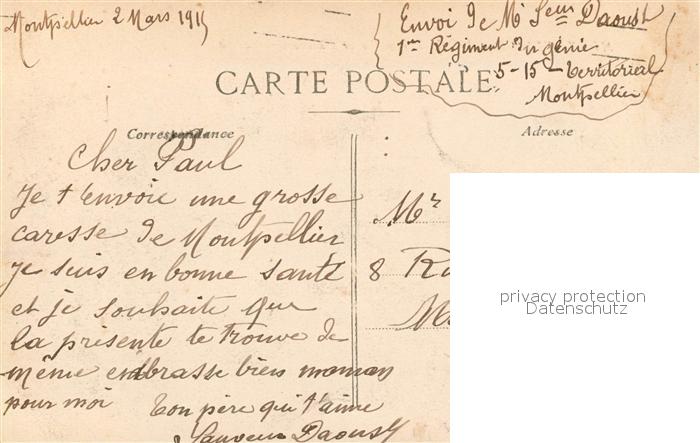 Montpellier 2 Mars 1915
Envoi de Mr Seur Daoust
1er Régiment du génie
5-15-territorial
Montpellier
CARTE POSTALE
Correspondance
Adresse
Cher Paul
Je t'envoie une grosse
caresse de Montpellier
je suis en bonne santé
et je souhaite que
la présente te trouve de
même embrasse bien maman
pour moi
Ton père qui t'aime
Sauveur Daoust
Mr
8
privacy protection
Datenschutz